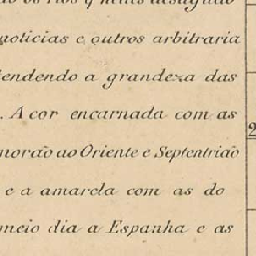 os rios q nelles desaguão
noticias e outros arbitraria
endendo a grandeza das
. A cor encarnada com as
morão ao Oriente e Septentrião
e a amarela com as do
meio dia a Espanha e as
2